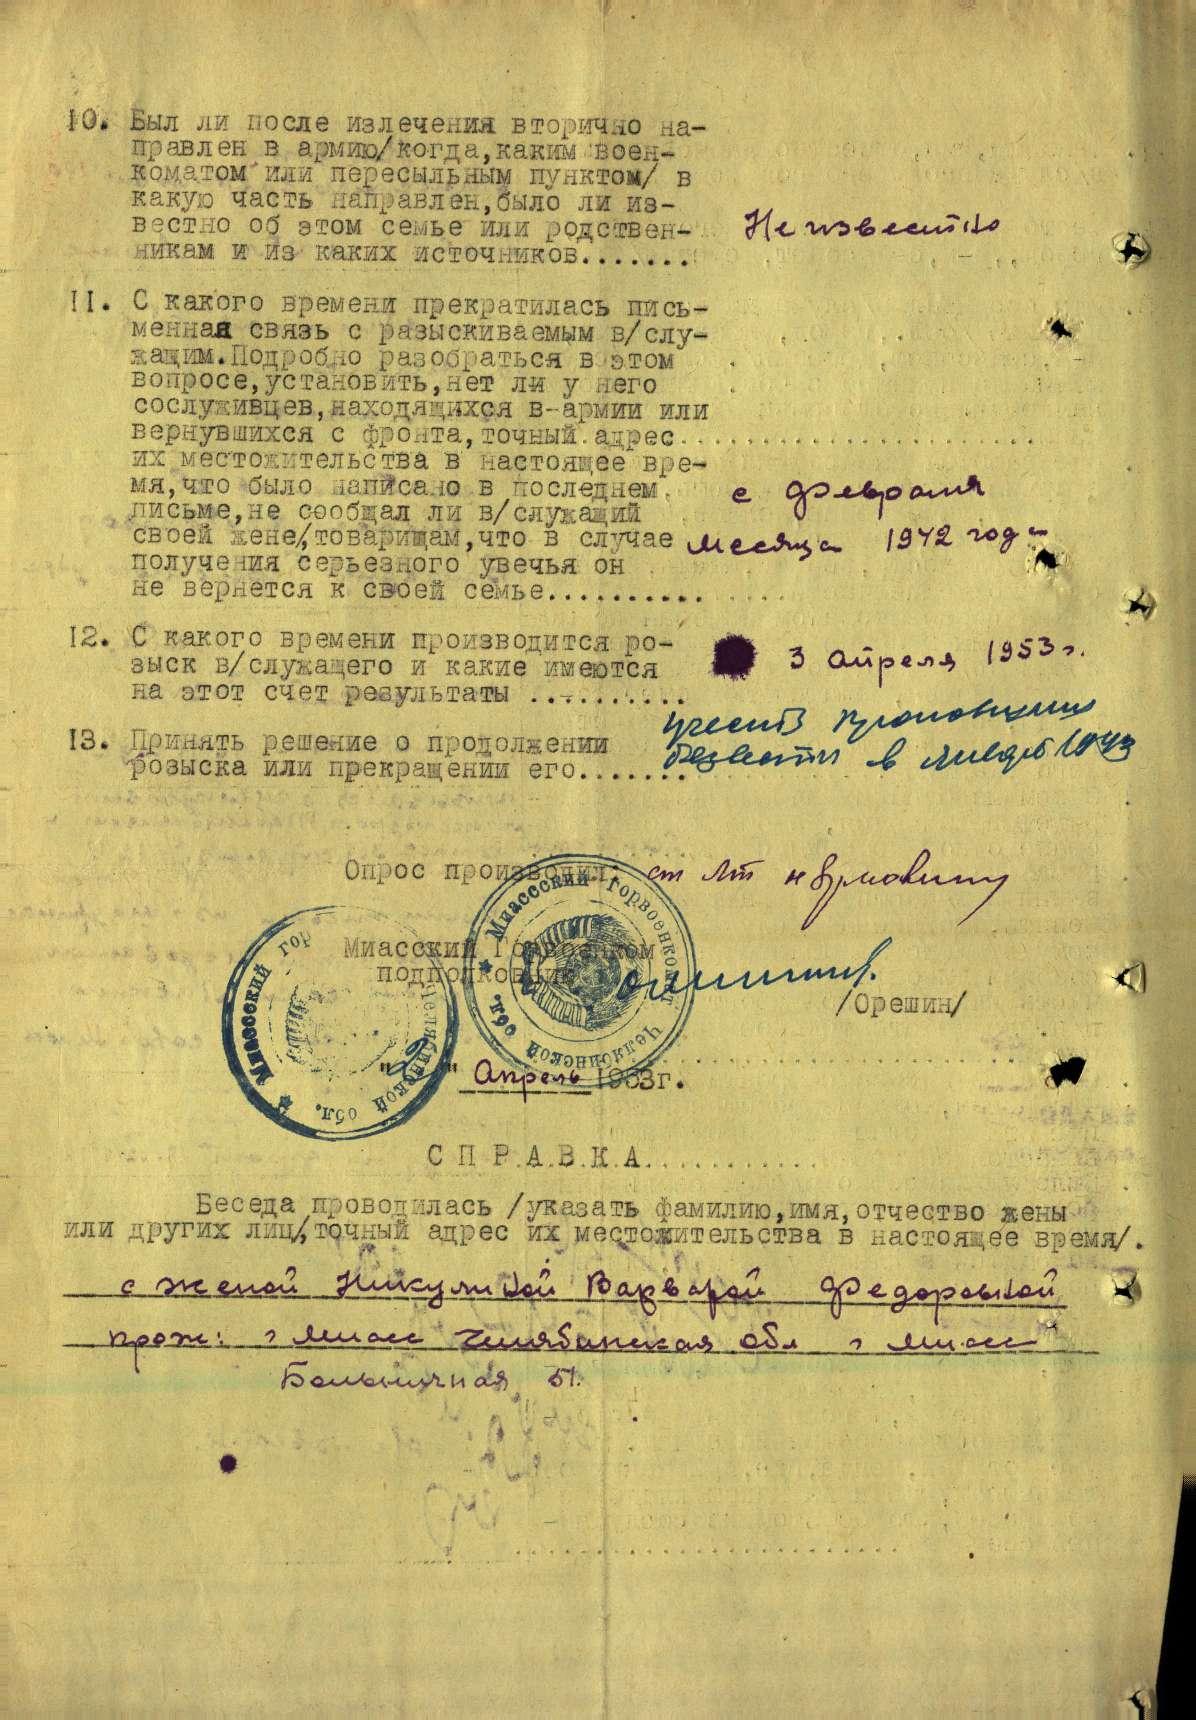 10. Был ли после излечения вторично на-
правлен в армию/когда,каким воен-
коматом или пересыльным пунктом/ в
какую часть направлен,было ли из-
вестно об этом семье или родствен-
никам и из каких источников.......
Не известно
11. С какого времени прекратилась пись-
менная связь с разыскиваемым в/слу-
жащим.Подробно разобраться в этом
вопросе,установить,нет ли у него
сослуживцев,находящихся в-армии или
вернувшихся с фронта,точный адрес
их местожительства в настоящее вре-
мя,что было написано в последнем
письме,не сообщал ли в/служащий
своей жене/,товарищам,что в случае
получения серьезного увечья он
не вернется к своей семье..........
с февраля
месяца 1942 года
12. С какого времени производится ро-
зыск в/служащего и какие имеются
на этот счет результаты ..........
3 апреля 1953 г.
13. Принять решение о продолжении
розыска или прекращении его.......
учесть пропавшим
безвести в 1943
Опрос производил: ст лт
Миасский Горвоенком
подполковник
/Орешин/
" " Апрель 1953г.
Миассский Горвоенкомат Челябинской обл.
Миассский гор Челябинской обл.
С П Р А В К А
Беседа проводилась /указать фамилию,имя,отчество жены
или других лиц/,точный адрес их местожительства в настоящее время/.
с женой Никулиной Варварой Федоровной
прож: г Миасс Челябинская обл г Миасс
Больничная 51.